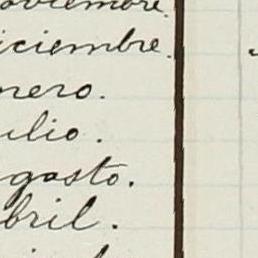 oviembre.
iciembre.
nero.
ulio.
gosto.
bril.